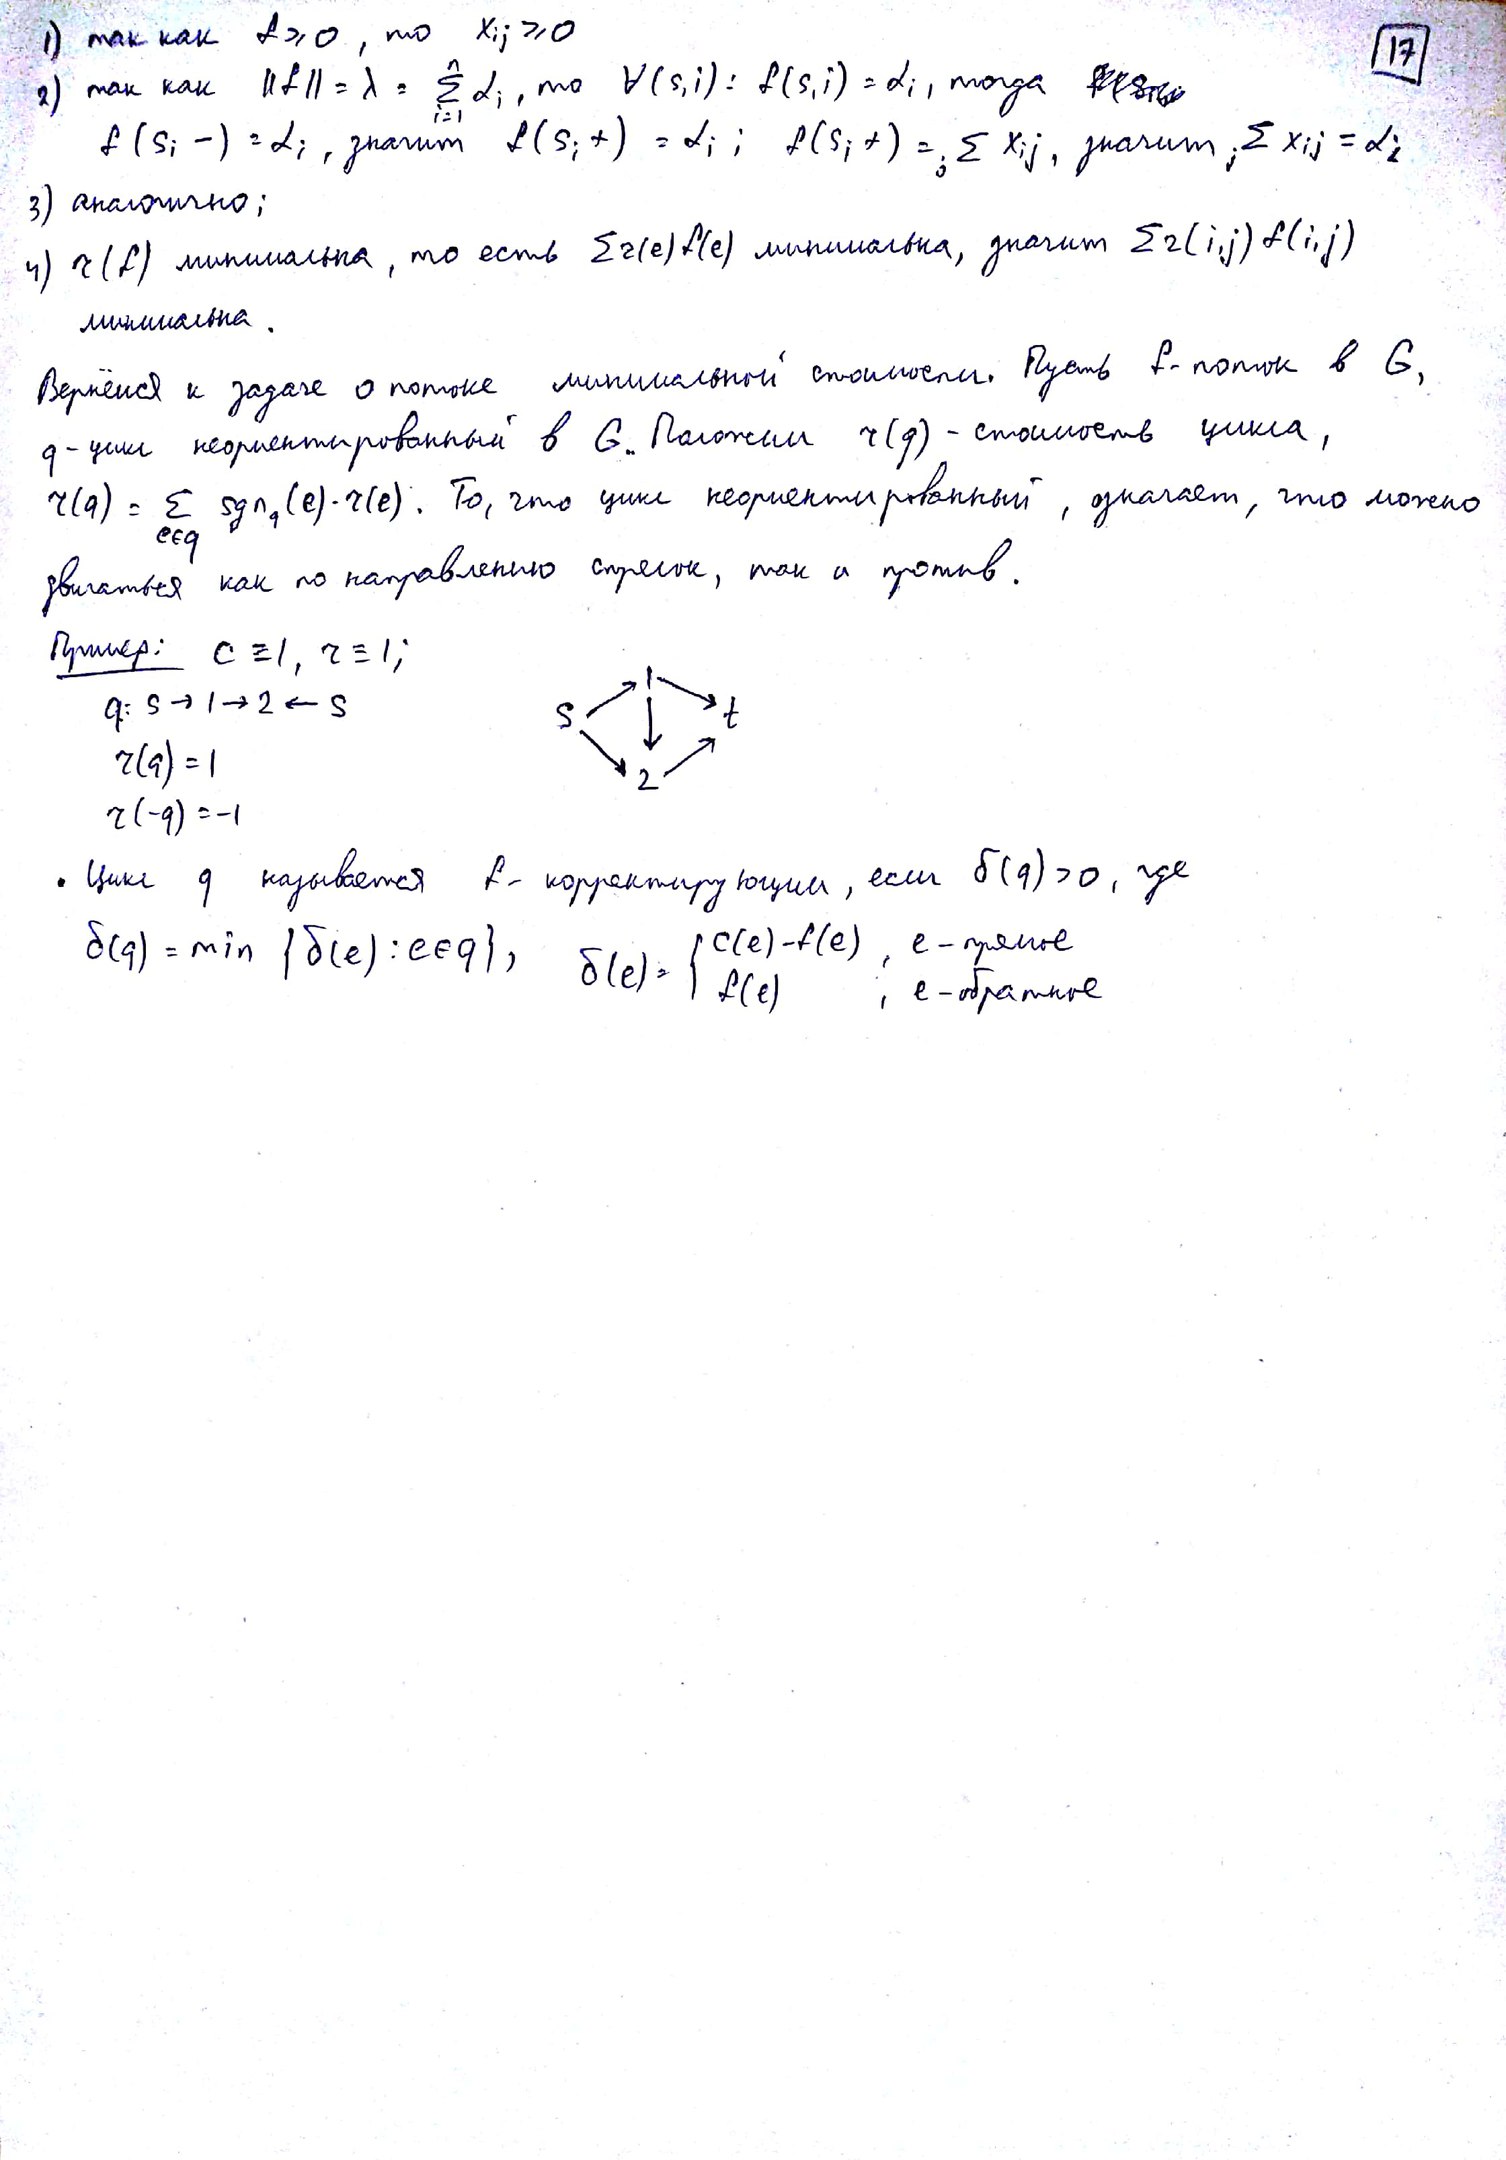 17
1) так как f ⩾ 0, то x_ij ⩾ 0
2) так как ||f|| = λ = Σ_{i=1}^{n} α_i, то ∀(s,i): f(s,i) = α_i, тогда
f(s_i -) = α_i, значит f(s_i +) = α_i; f(s_i +) = _jΣ x_ij, значит _jΣ x_ij = α_i
3) аналогично;
4) r(f) минимальна, то есть Σr(e)f(e) минимальна, значит Σr(i,j)f(i,j)
минимальна.
Вернёмся к задаче о потоке минимальной стоимости. Пусть f - поток в G,
q - цикл неориентированный в G. Положим r(q) - стоимость цикла,
r(q) = Σ_{e∈q} sgn_q(e)·r(e). То, что цикл неориентированный, означает, что можно
двигаться как по направлению стрелок, так и против.
Пример: c ≡ 1, r ≡ 1;
q: s → 1 → 2 ← s
r(q) = 1
r(-q) = -1
1
s t
2
• Цикл q называется f - корректирующим, если δ(q) > 0, где
δ(q) = min {δ(e) : e∈q}, δ(e) = { c(e) - f(e), e - прямое
f(e), e - обратное